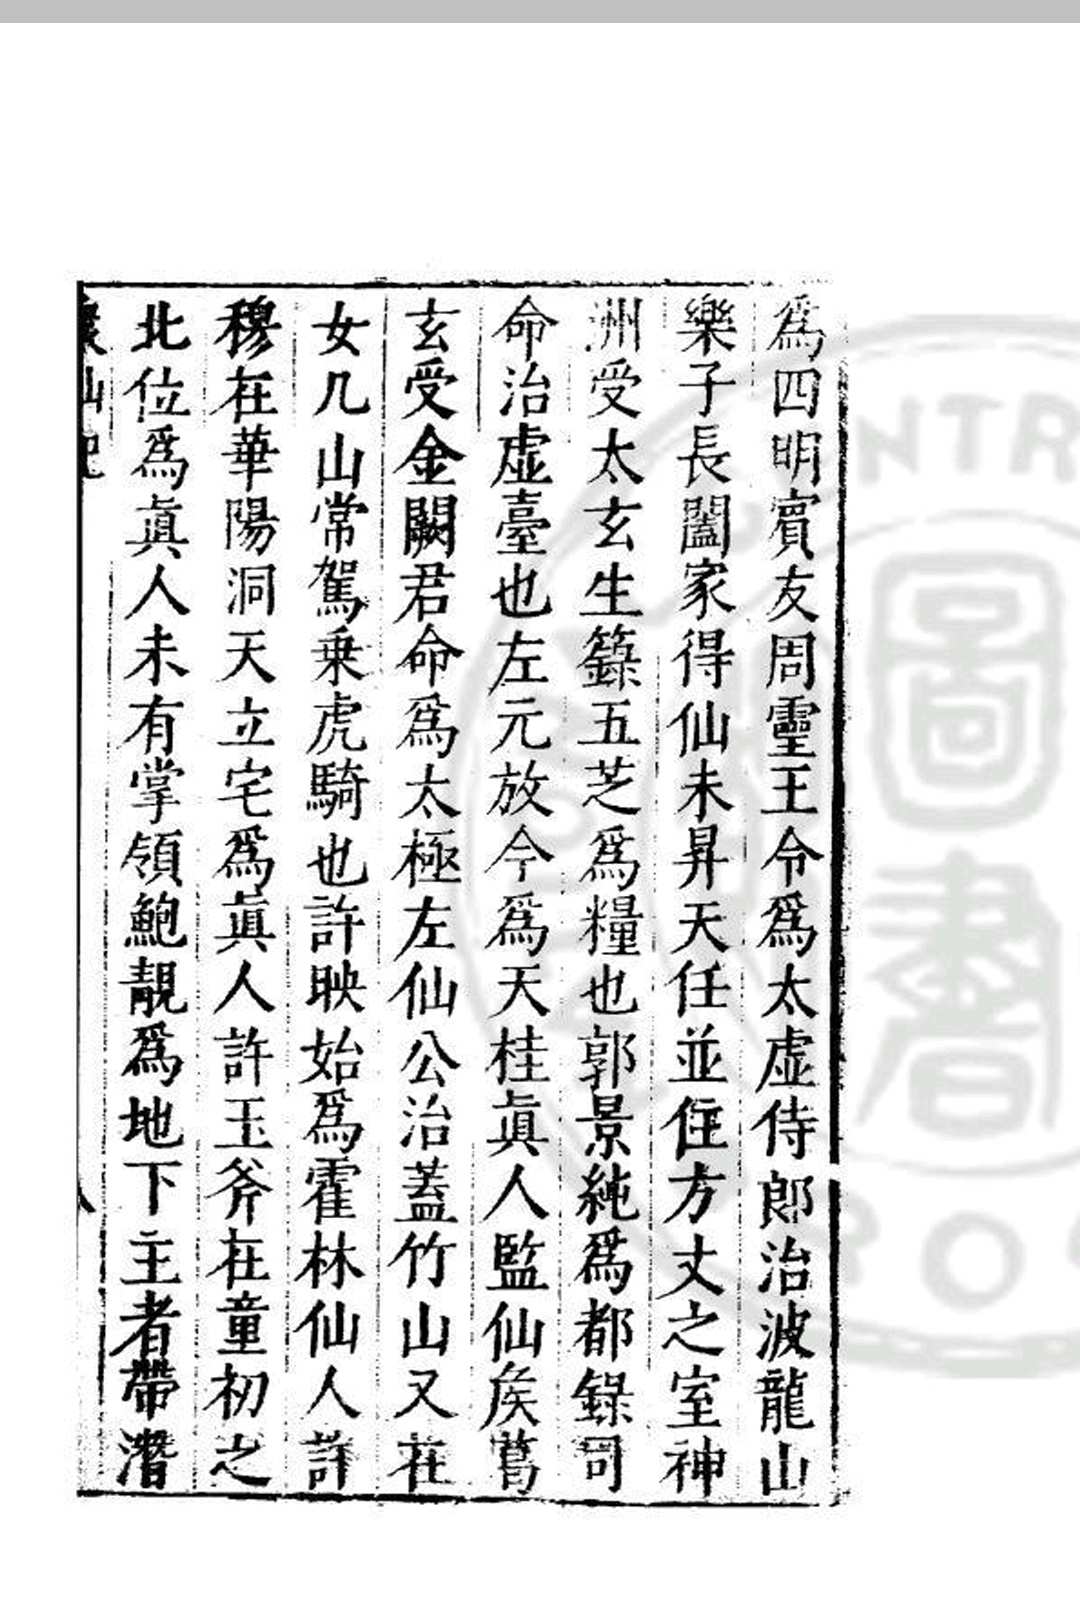 為四明賓友周靈王令為太虛侍郎治波龍山
樂子長闔家得仙未昇天任並住方丈之室神
洲受太玄生籙五芝為糧也郭景純為都錄司
命治虛臺也左元放今為天桂眞人監仙矦葛
玄受金闕君命為太極左仙公治蓋竹山又在
女几山常駕乗虎騎也許映始為霍林仙人許
穆在華陽洞天立宅為眞人許玉斧在童初之
北位為眞人未有掌領鮑靚為地下主者帶潛
仙
八
圖書